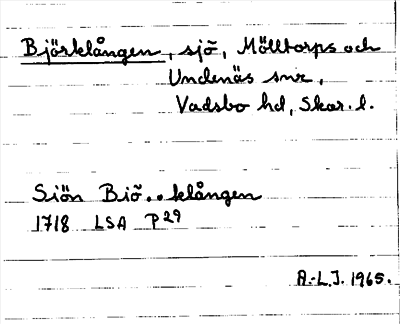 Björklången, sjö, Mölltorps och
Undenäs snr,
Vadsbo hd, Skar. l.
Siön Biö..klången
1718 LSA P29
A.-L.J. 1965.